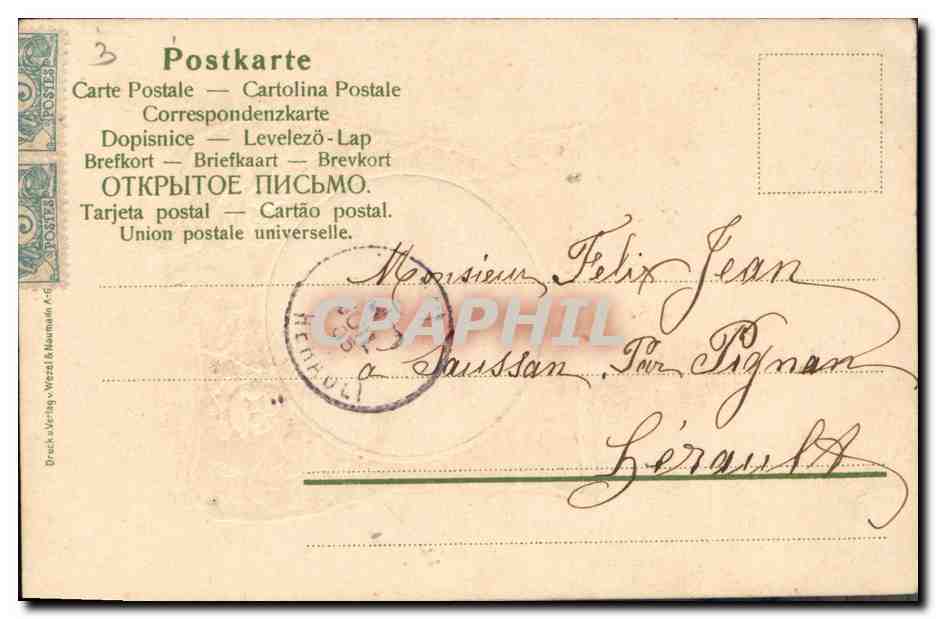 3
Postkarte
Carte Postale — Cartolina Postale
Correspondenzkarte
Dopisnice — Levelező-Lap
Brefkort — Briefkaart — Brevkort
ОТКРЫТОЕ ПИСЬМО.
Tarjeta postal — Cartão postal.
Union postale universelle.
POSTES
POSTES
Druck u. Verlag v. Wezel & Naumann A-G
Monsieur Felix Jean
à Saussan Par Pignan
Hérault
HERAULT
CPARPHIL